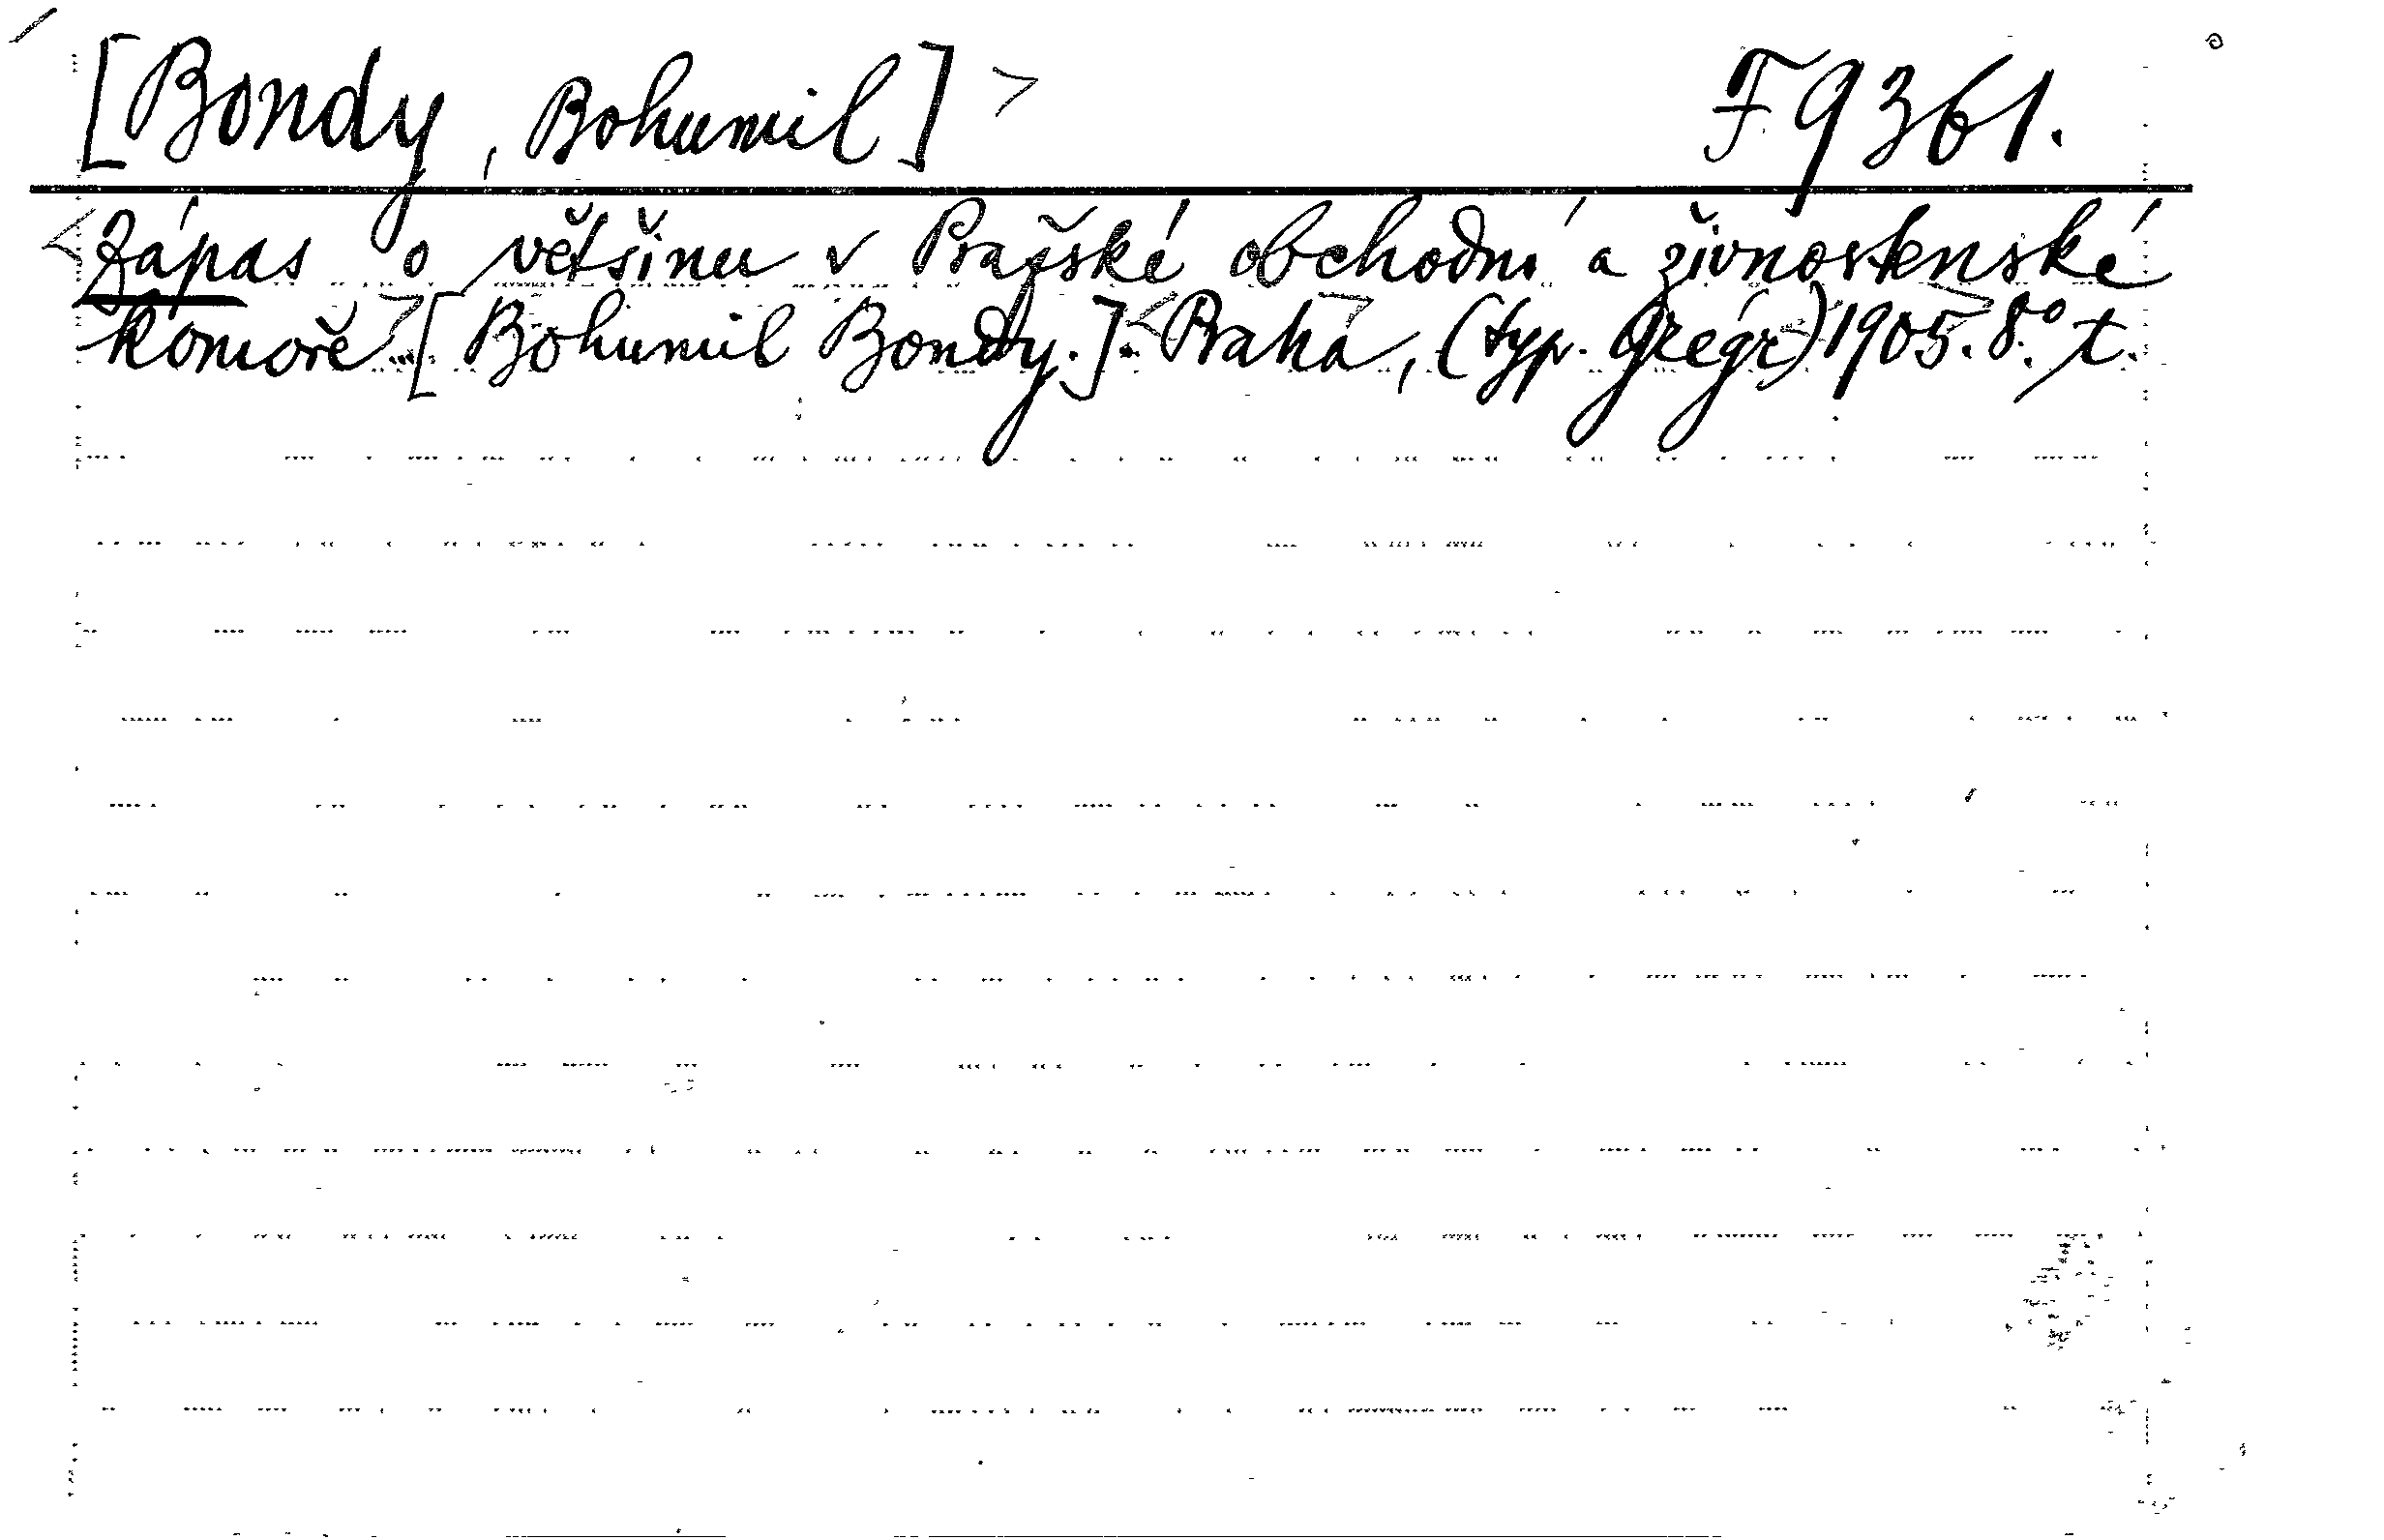 [Bondy, Bohumil] F 9361.
Zápas o většinu v Pražské obchodní a živnostenské
komoře [Bohumil Bondy.]. Praha, (typ. Grégr) 1905. 8.° t.